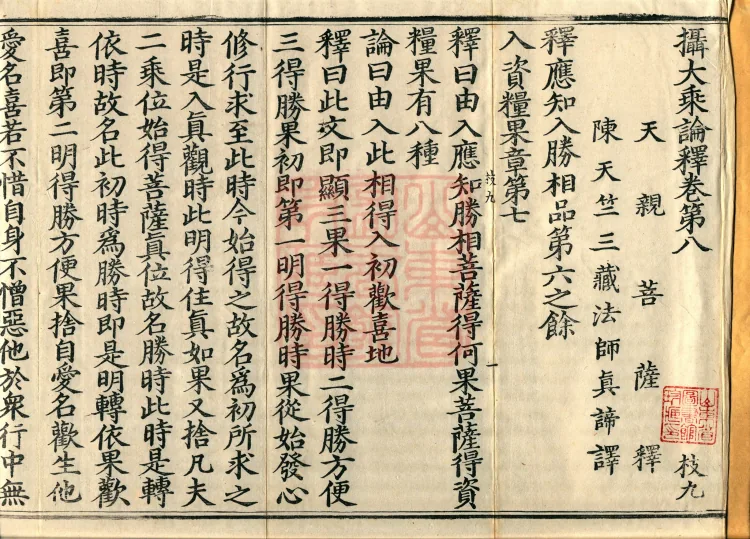 攝大乘論釋卷第八
枝九
天親菩薩釋
陳天竺三藏法師眞諦譯
釋應知入勝相品第六之餘
入資糧果章第七
枝九
釋曰由入應知勝相菩薩得何果菩薩得資
糧果有八種
論曰由入此相得入初歡喜地
釋曰此文即顯三果一得勝時二得勝方便
三得勝果初即第一明得勝時果從始發心
修行求至此時今始得之故名爲初所求之
時是入眞觀時此明得住眞如果又捨凡夫
二乘位始得菩薩眞位故名勝時此時是轉
依時故名此初時爲勝時即是明轉依果歡
喜即第二明得勝方便果捨自愛名歡生他
愛名喜若不惜自身不憎惡他於衆行中無